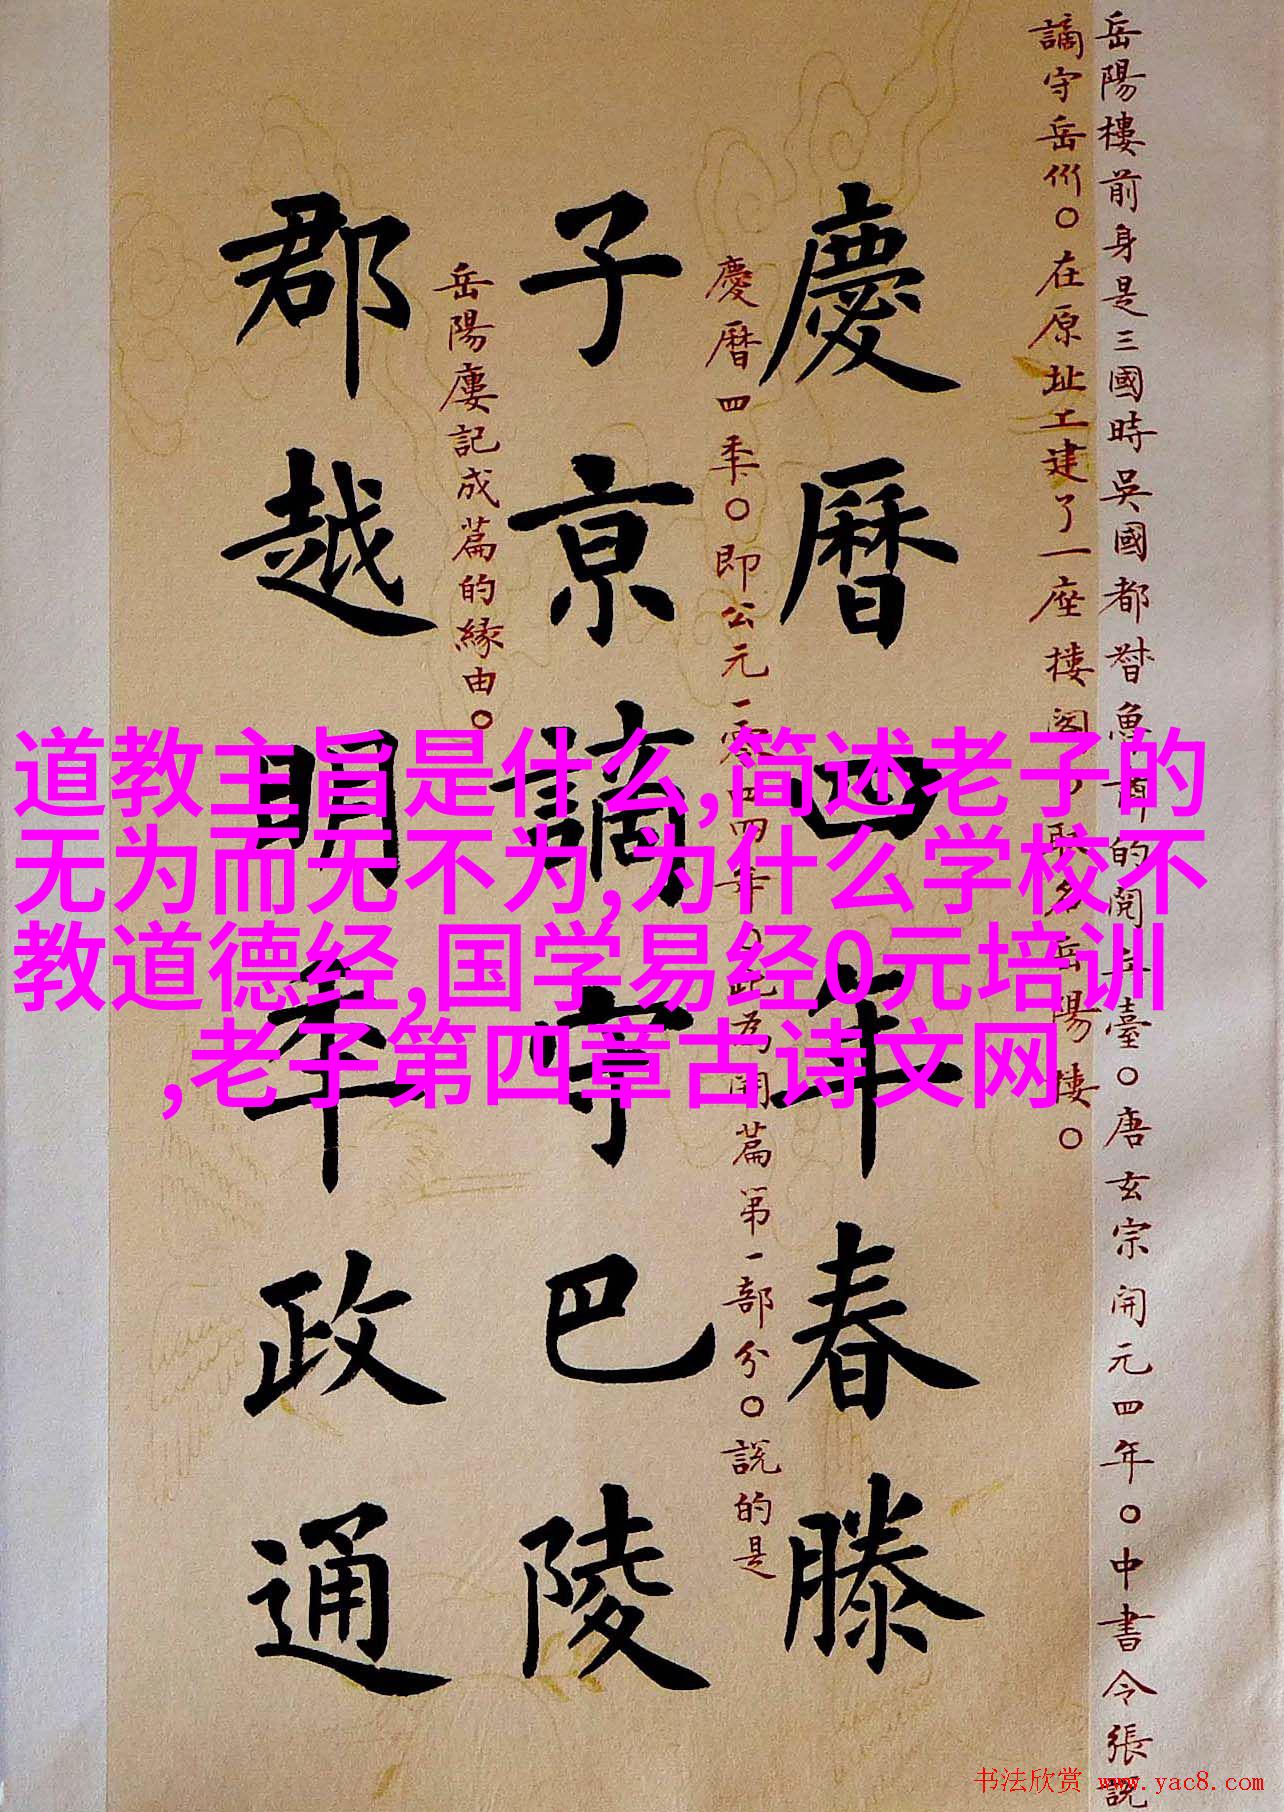 岳陽樓前身是三國時吳國都督魯肅的閱兵臺。唐玄宗開元四年。中書令張說
謫守岳州。在原址工建了一座樓閣。取名岳陽樓。
慶曆四年春滕
慶曆四年。即公元一零四四年。此為開篇第一部分。說的是
子京謫守巴陵
岳陽廔記成篇的緣由。
郡越明年政通
道教主旨是什么,简述老子的
无为而无不为,为什么学校不
教道德经,国学易经0元培训
,老子第四章古诗文网
书法欣赏 www.yac8.com